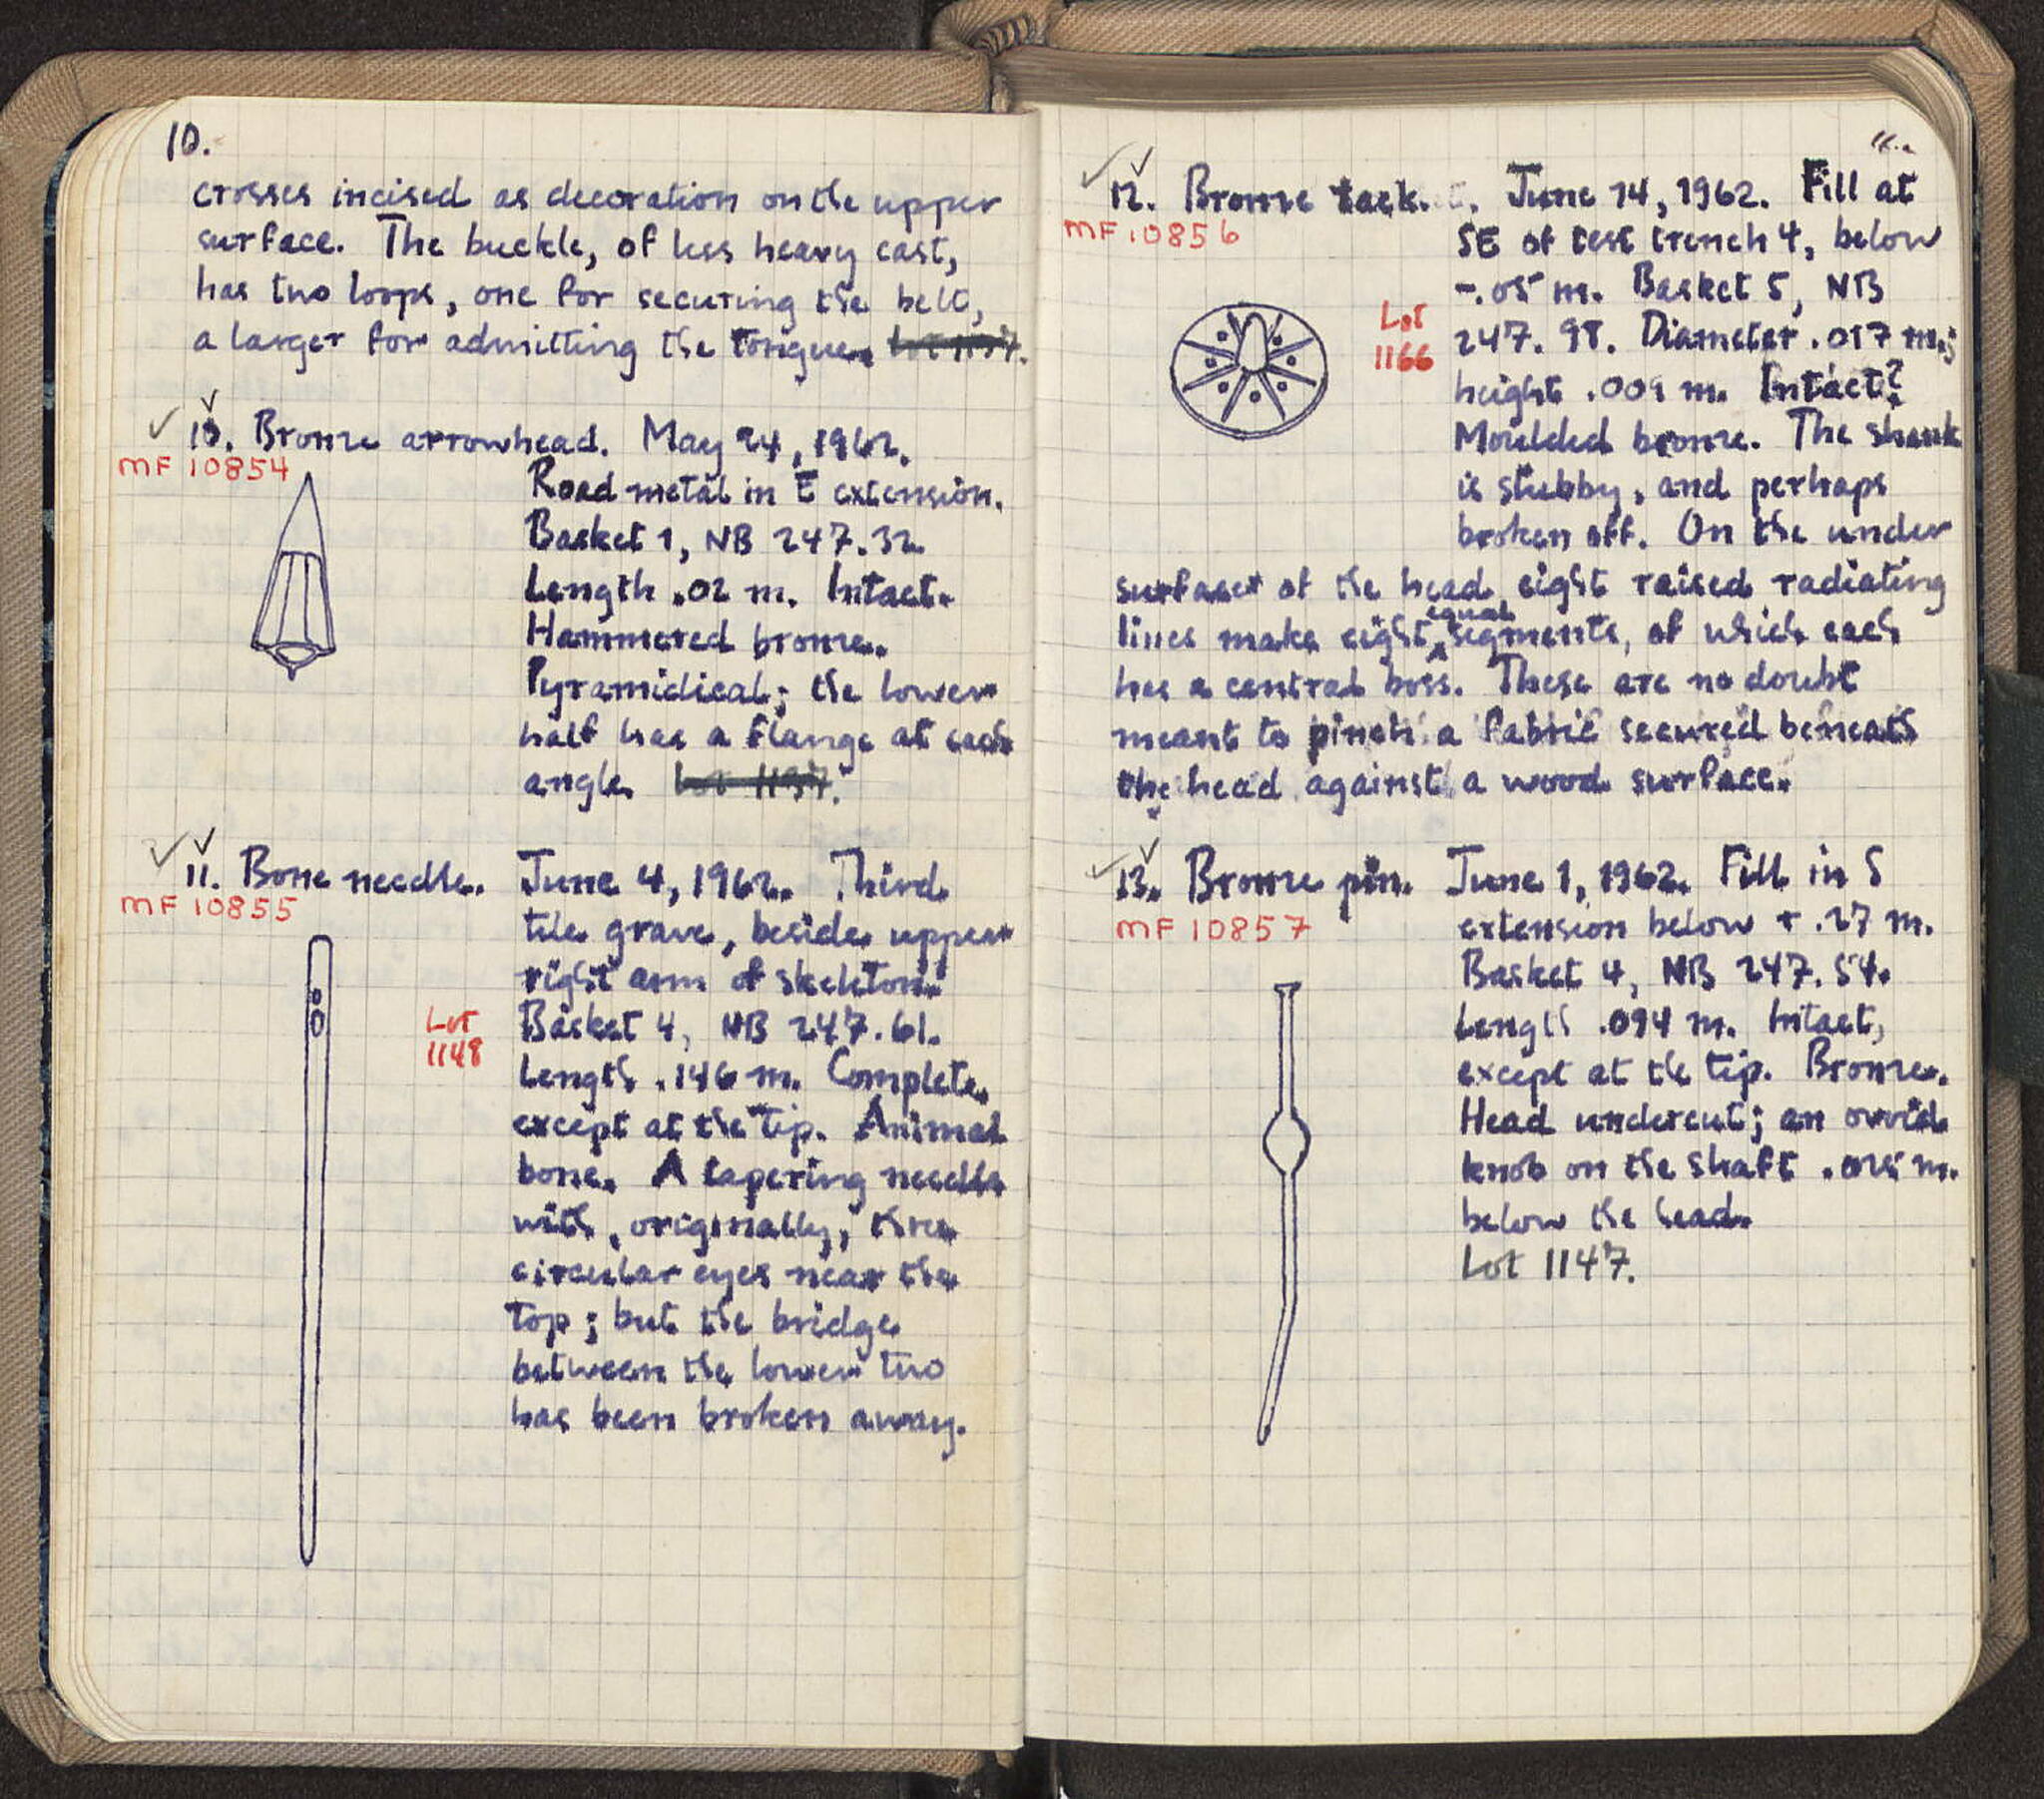 10.
crosses incised as decoration on the upper
surface. The buckle, of less heavy cast,
has two loops, one for securing the belt,
a larger for admitting the tongue. Lot 1137.
10. Bronze arrowhead. May 24, 1962.
MF 10854
Road metal in E extension.
Basket 1, NB 247.32.
Length .02 m. Intact.
Hammered bronze.
Pyramidical; the lower
half has a flange at each
angle. Lot 1137.
11. Bone needle. June 4, 1962. Third
MF 10855
tile grave, beside upper
right arm of skeleton.
Lot
1148
Basket 4, NB 247.61.
Length .146 m. Complete,
except at the tip. Animal
bone. A tapering needle
with, originally, three
circular eyes near the
top; but the bridge
between the lower two
has been broken away.
11.
12. Bronze tack. June 14, 1962. Fill at
MF 10856
SE of test trench 4, below
-.05 m. Basket 5, NB
Lot
1166
247. 98. Diameter .017 m.;
height .009 m. Intact?
Moulded bronze. The shank
is stubby, and perhaps
broken off. On the under
surface of the head eight raised radiating
lines make eight equal segments, of which each
has a central boss. These are no doubt
meant to pinch a fabric secured beneath
the head against a wood surface.
13. Bronze pin. June 1, 1962. Fill in S
MF 10857
extension below + .27 m.
Basket 4, NB 247.54.
Length .094 m. Intact,
except at the tip. Bronze.
Head undercut; an ovoid
knob on the shaft .025 m.
below the head.
Lot 1147.